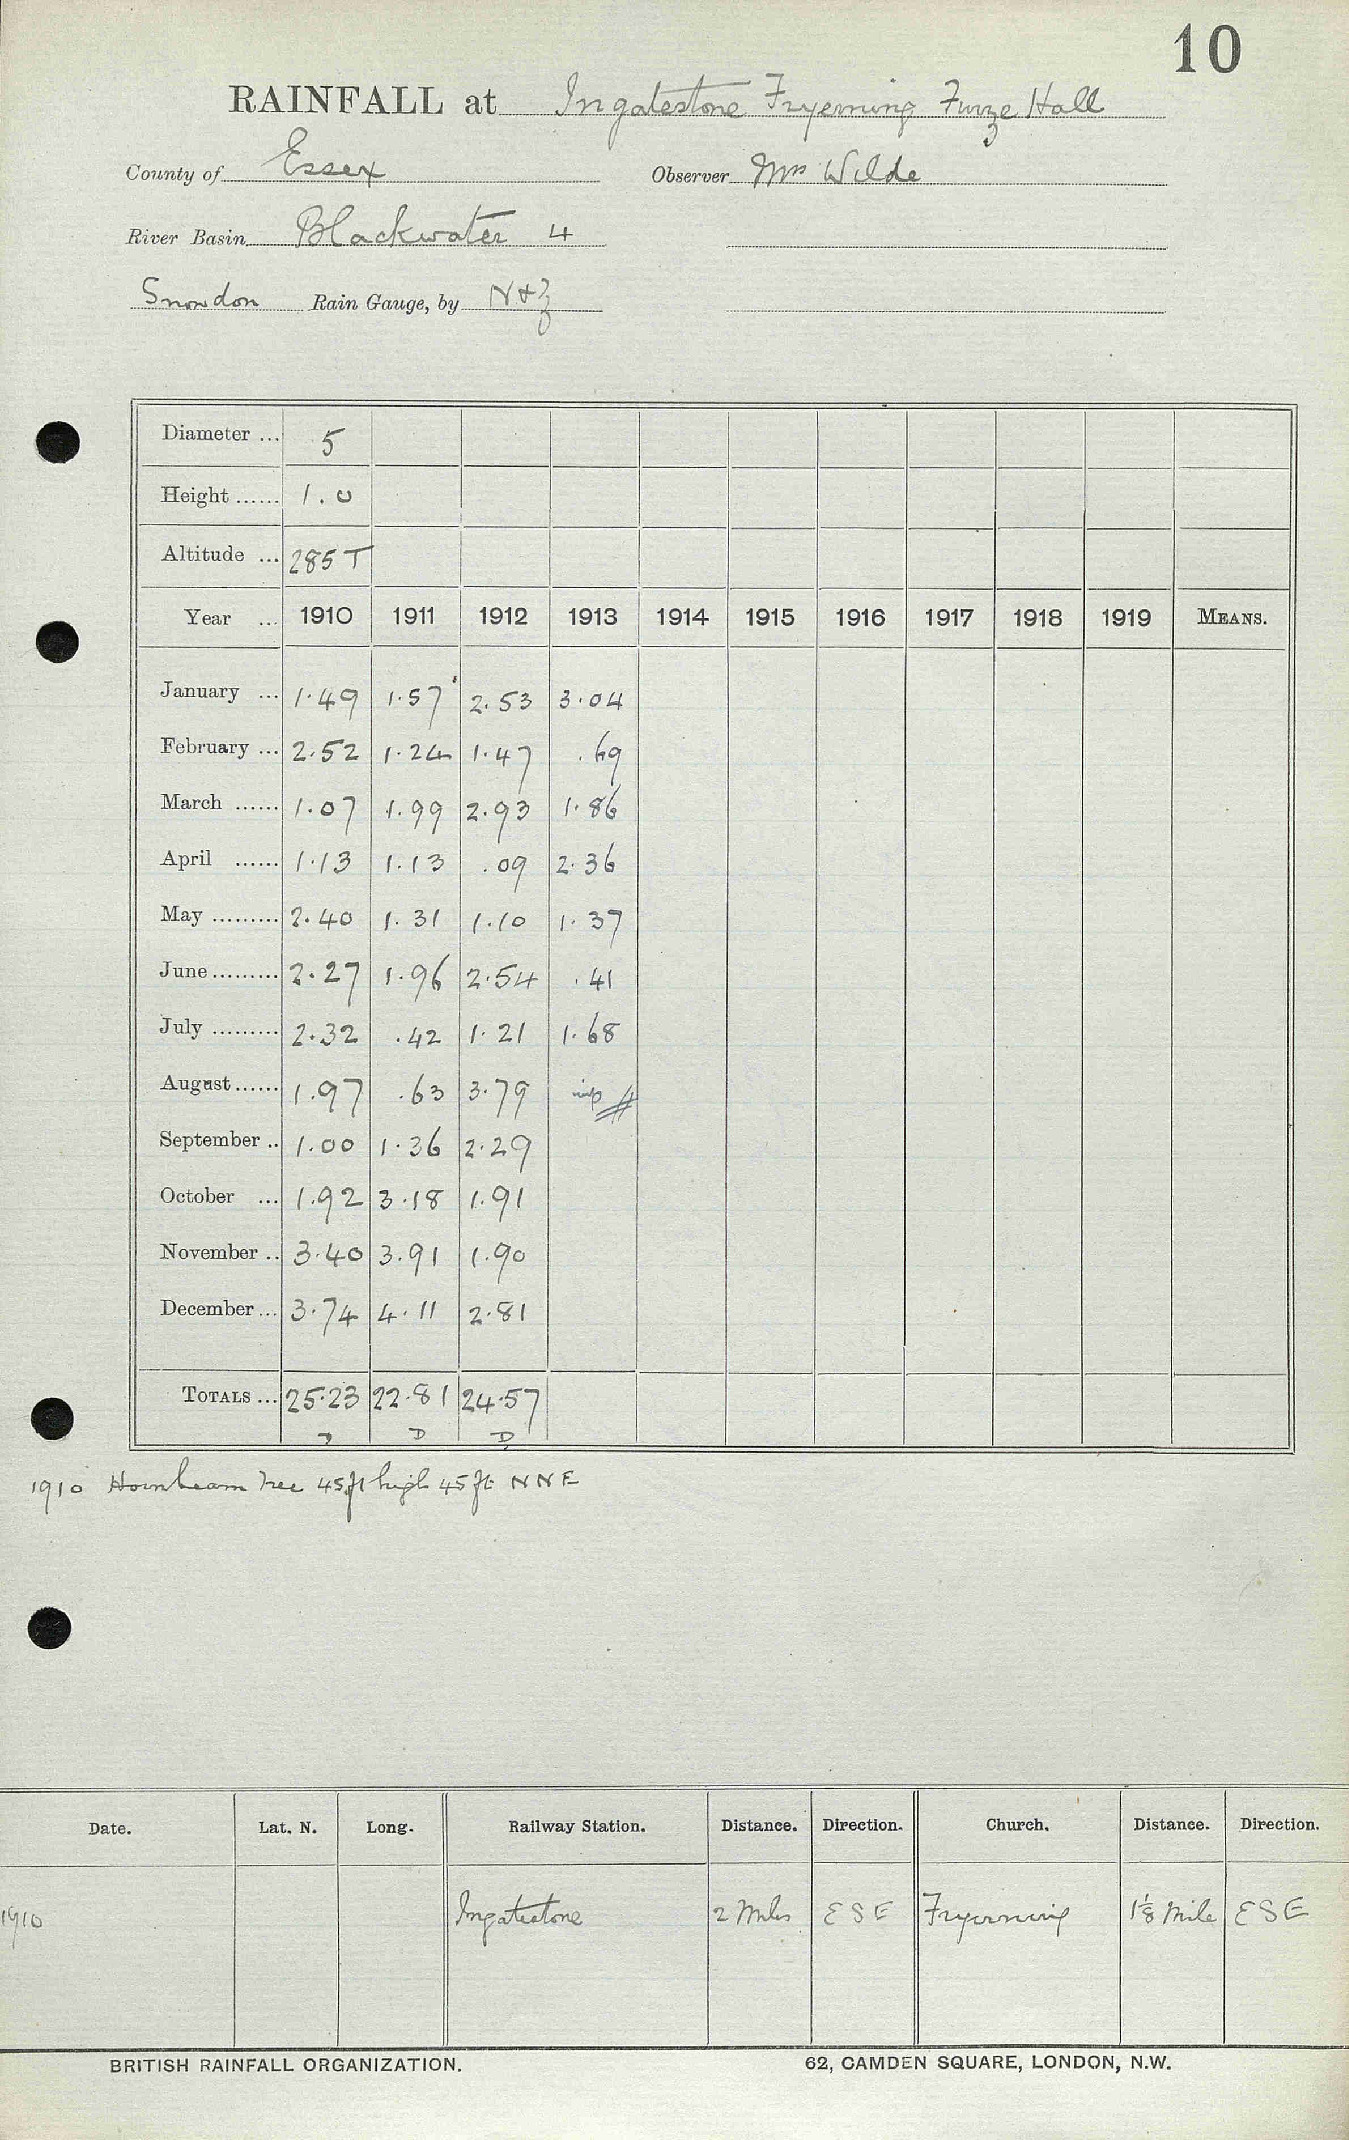 10
RAINFALL at Ingatestone Fryerning Furze Hall
County of Essex Observer Mrs Wilde
River Basin Blackwater 4
Snowdon Rain Gauge, by N & Z
Diameter ... 5
Height ...... 1.0
Altitude ... 285 T
Year ... 1910 1911 1912 1913 1914 1915 1916 1917 1918 1919 MEANS.
January ... 1.49 1.57 2.53 3.04
February ... 2.52 1.24 1.47 .69
March ...... 1.07 1.99 2.93 1.86
April ...... 1.13 1.13 .09 2.36
May ......... 2.40 1.31 1.10 1.37
June ......... 2.27 1.96 2.54 .41
July ......... 2.32 .42 1.21 1.68
August ...... 1.97 .63 3.79
September .. 1.00 1.36 2.29
October ... 1.92 3.18 1.91
November .. 3.40 3.91 1.90
December ... 3.74 4.11 2.81
TOTALS ... 25.23 22.81 24.57
D D
1910 Hornbeam tree 45 ft high 45 ft NNE
Date. Lat. N. Long. Railway Station. Distance. Direction. Church. Distance. Direction.
1910 Ingatestone 2 Miles ESE Fryerning 1⅛ Mile ESE
BRITISH RAINFALL ORGANIZATION. 62, CAMDEN SQUARE, LONDON, N.W.